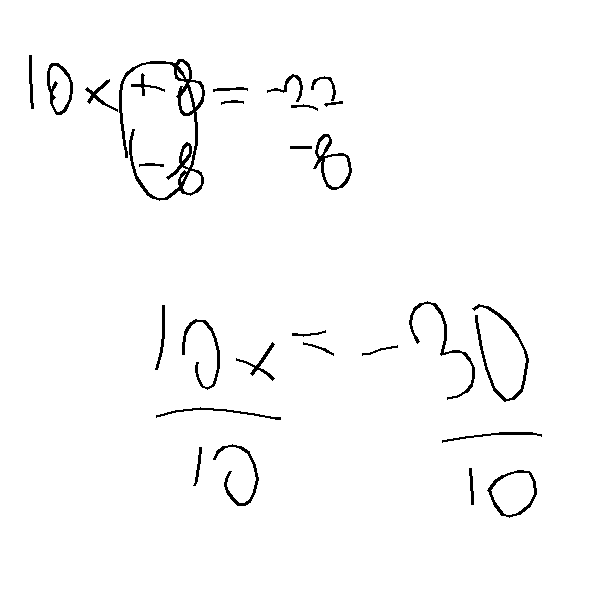 10x +8 = -22
-8 -8
10x = -30
10 10